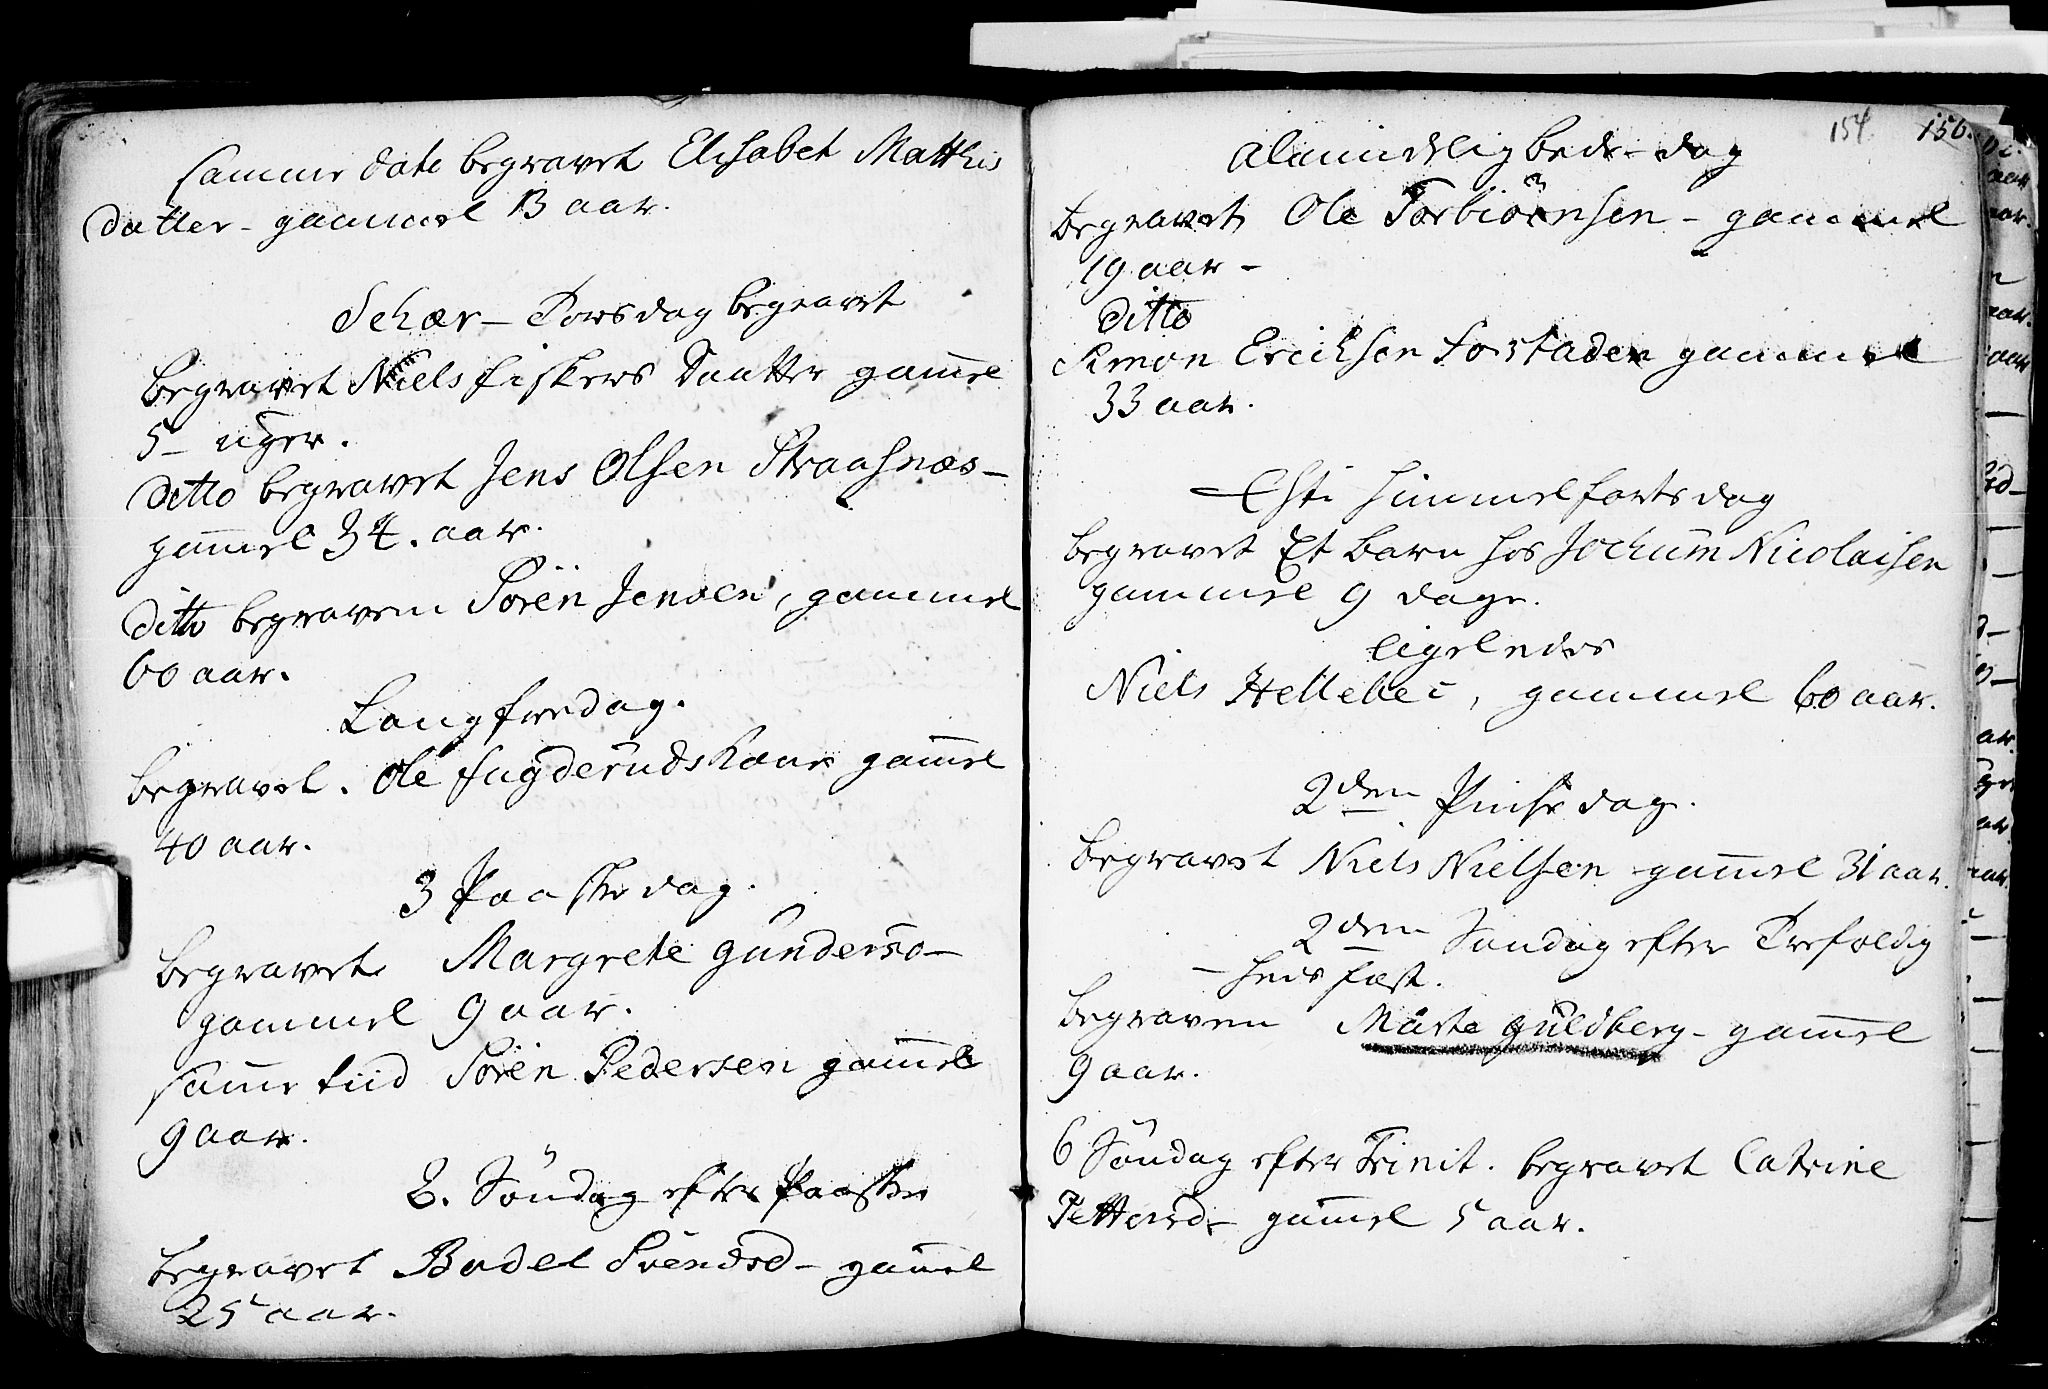 samme dato begravet Elisabet Matthis
datter - gammel 13 aar.
Schær - Torsdag begravet
begravet Niels fiskers Daatter gam̄el
5 - uger.
ditto begravet Jens Olsen Straasnæs -
gam̄el 34. aar.
ditto begraven Sören Jensen, gammel
60 aar.
Langfredag.
begravet. Ole fugderuds Kone gam̄el
40 aar.
3 Paaske dag.
begravet Margrete Gundersd -
gammel 9 aar.
sam̄e tiid Sören Pedersen gam̄el
9 aar.
2. Söndag efter Paaske
begravet Bodel Svendsd - gam̄el
25 aar.
154 156.
Almindelig bede - dag
begravet Ole Torbiörnsen - gammel
19 aar -
ditto
Simon Ericksen forstaden gammel
33 aar.
Chti himmelfarts dag
begravet Et barn hos Jochum Nicolaisen
gammel 9 dage.
ligeledes
Niels Hellebec, gammel 60 aar.
2den Pinse dag.
begravet Niels Nielsen gam̄el 31 aar.
2den Söndag efter Trefoldig
- heds fæst.
begraven Marte Guldberg - gam̄el
9 aar.
6 Söndag efter Trinit. begravet Catrine
Pettersd - gam̄el 5 aar.